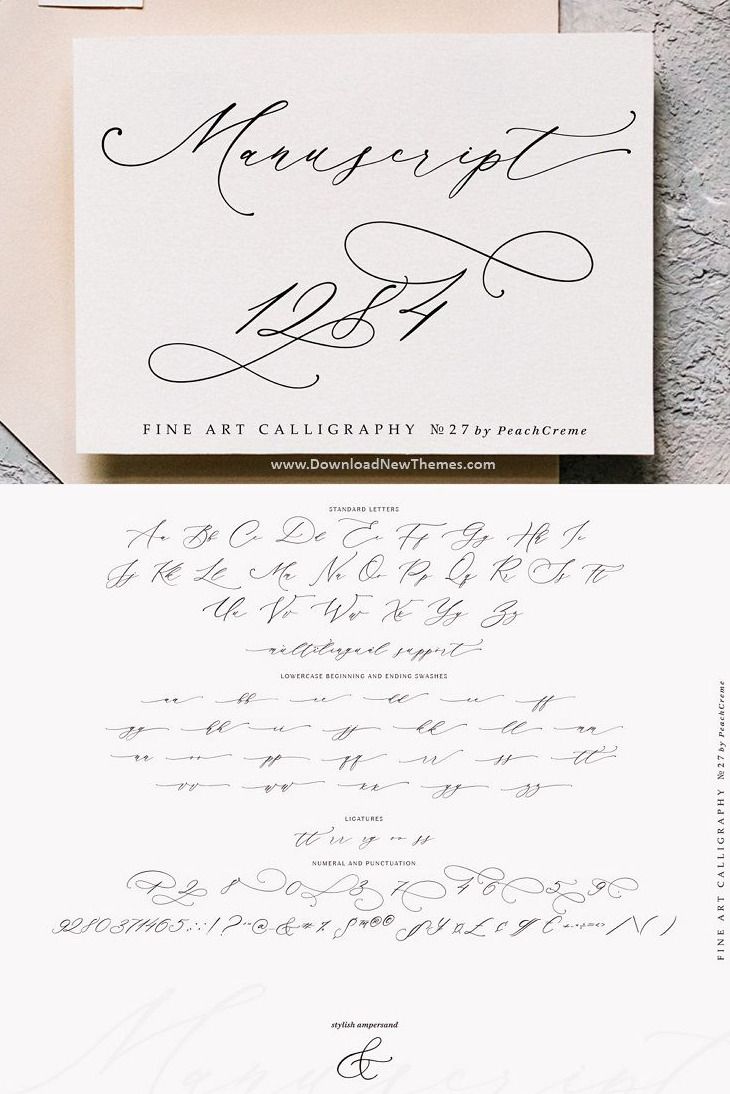 Manuscript
1284
FINE ART CALLIGRAPHY №27 by PeachCreme
www.DownloadNewThemes.com
STANDARD LETTERS
Aa Bb Cc Dd Ee Ff Gg Hh Ii
Jj Kk Ll Mm Nn Oo Pp Qq Rr Ss Tt
Uu Vv Ww Xx Yy Zz
multilingual support
LOWERCASE BEGINNING AND ENDING SWASHES
aa bb cc dd ee ff
gg hh ii jj kk ll mm
nn oo pp qq rr ss tt
vv ww xx yy zz
LIGATURES
tt rr rg oo ss
NUMERAL AND PUNCTUATION
1 2 8 0 3 7 4 6 5 9
9280371465 : ; ! ? @ & # % ® © ¥ ¤ £ ¢ € / \ ( )
stylish ampersand
&
Manuscript
FINE ART CALLIGRAPHY №27 by PeachCreme